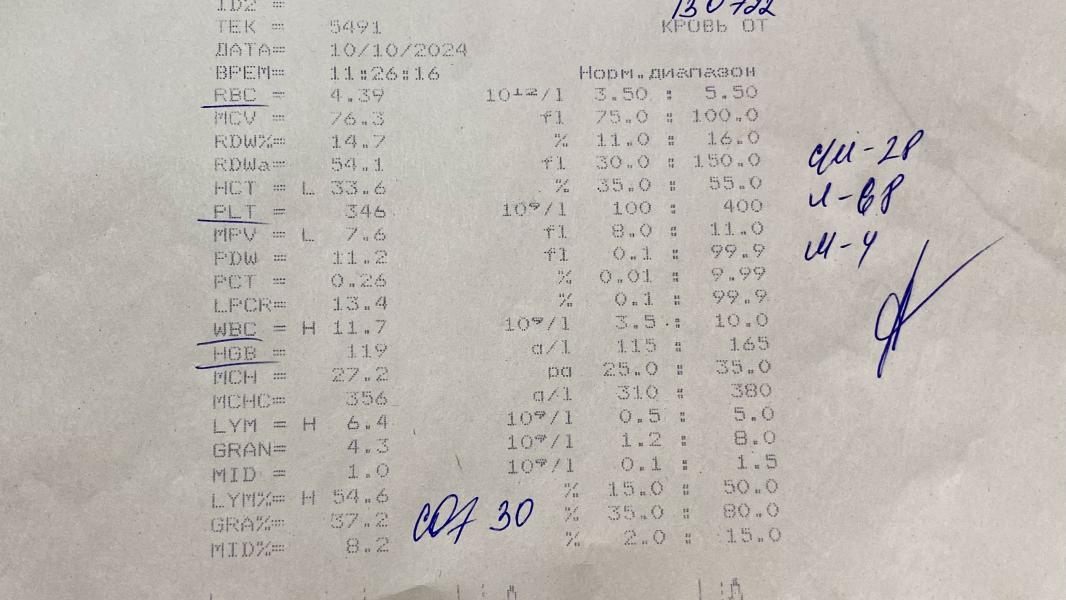 ID2 =
ТЕК = 5491 КРОВЬ ОТ
ДАТА= 10/10/2024
ВРЕМ= 11:26:16 Норм.диапазон
RBC = 4.39 10¹²/l 3.50 : 5.50
MCV = 76.3 fl 75.0 : 100.0
RDW%= 14.7 % 11.0 : 16.0
RDWa= 54.1 fl 30.0 : 150.0
HCT = L 33.6 % 35.0 : 55.0
PLT = 346 10⁹/l 100 : 400
MPV = L 7.6 fl 8.0 : 11.0
PDW = 11.2 fl 0.1 : 99.9
PCT = 0.26 % 0.01 : 9.99
LPCR= 13.4 % 0.1 : 99.9
WBC = H 11.7 10⁹/l 3.5 : 10.0
HGB = 119 g/l 115 : 165
MCH = 27.2 pg 25.0 : 35.0
MCHC= 356 g/l 310 : 380
LYM = H 6.4 10⁹/l 0.5 : 5.0
GRAN= 4.3 10⁹/l 1.2 : 8.0
MID = 1.0 10⁹/l 0.1 : 1.5
LYM%= H 54.6 % 15.0 : 50.0
GRA%= 37.2 % 35.0 : 80.0
MID%= 8.2 % 2.0 : 15.0
с/я-28
л-68
м-4
СОЭ 30